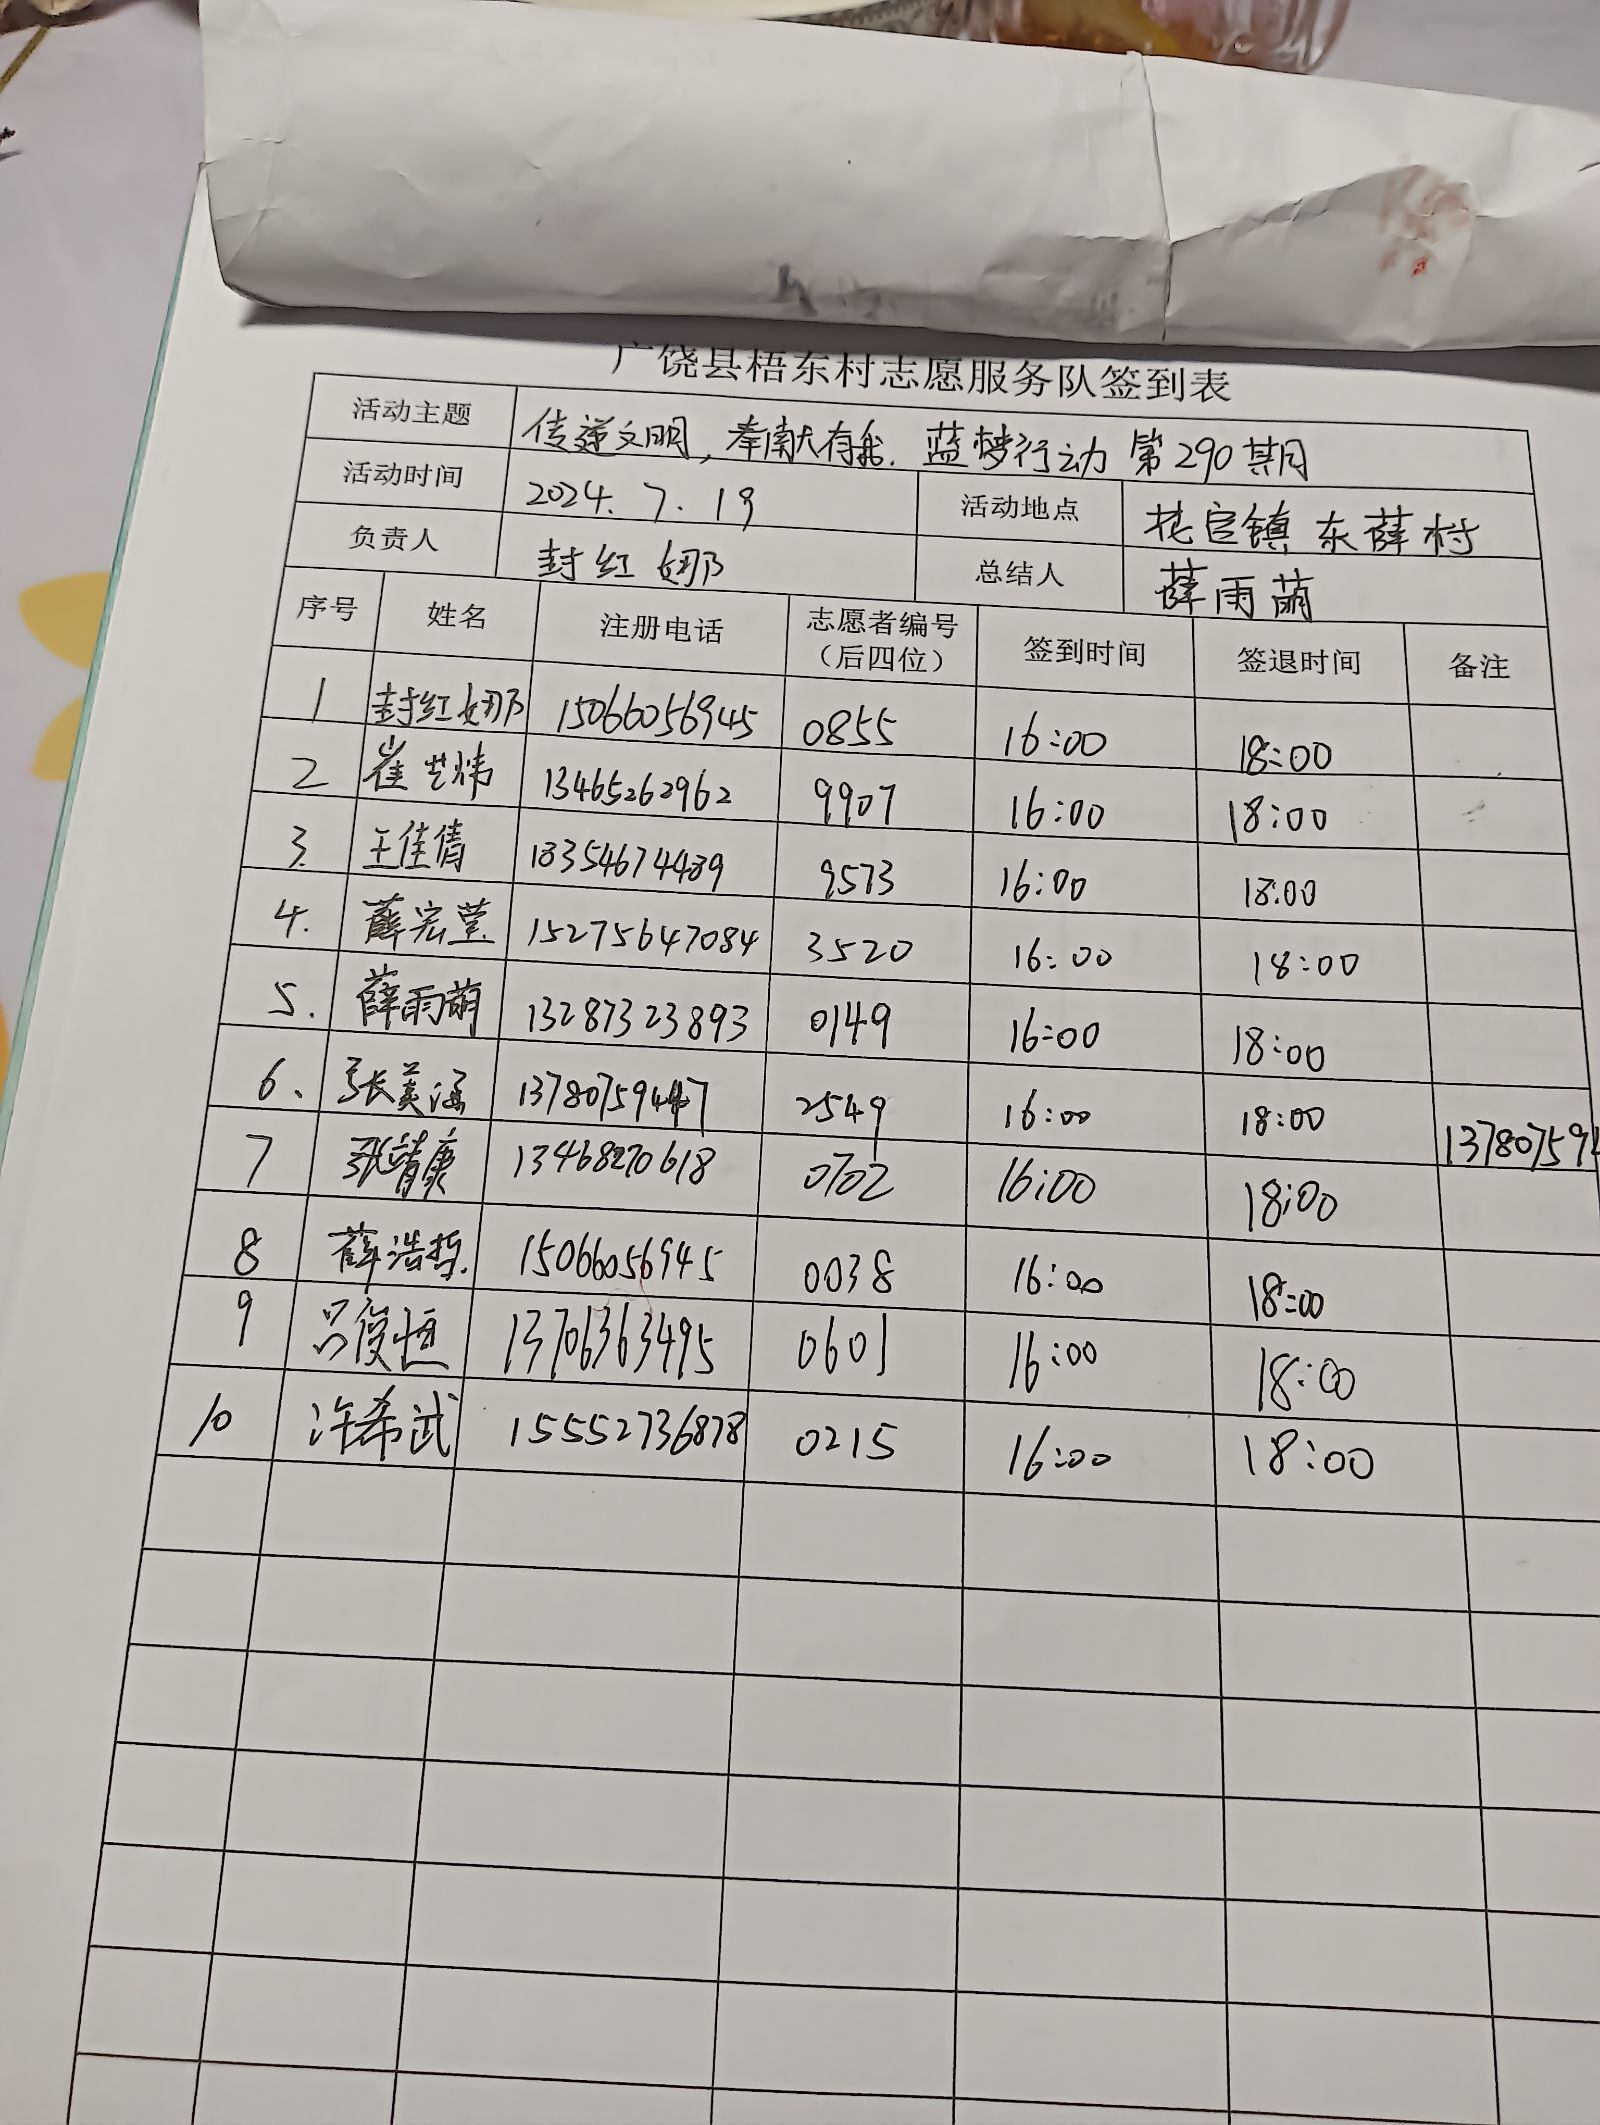 广饶县梧东村志愿服务队签到表
活动主题 传递文明,奉献大有我. 蓝梦行动 第290期
活动时间 2024. 7. 19 活动地点 花官镇 东薛村
负责人 封红娜 总结人 薛雨萌
序号 姓名 注册电话 志愿者编号（后四位） 签到时间 签退时间 备注
1 封红娜 15066056945 0855 16:00 18:00
2 崔艺炜 13465262962 9907 16:00 18:00
3. 王佳倩 9573 16:00 18:00
4. 薛宏莹 15275647084 3520 16:00 18:00
5. 薛雨萌 13287323893 0149 16:00 18:00
6. 张美涵 2549 16:00 18:00 137807594
7 张靖康 13468270618 0702 16:00 18:00
8 薛浩哲. 15066056945 0038 16:00 18:00
9 吕俊恒 13706363495 0601 16:00 18:00
10 许希武 15552736878 0215 16:00 18:00